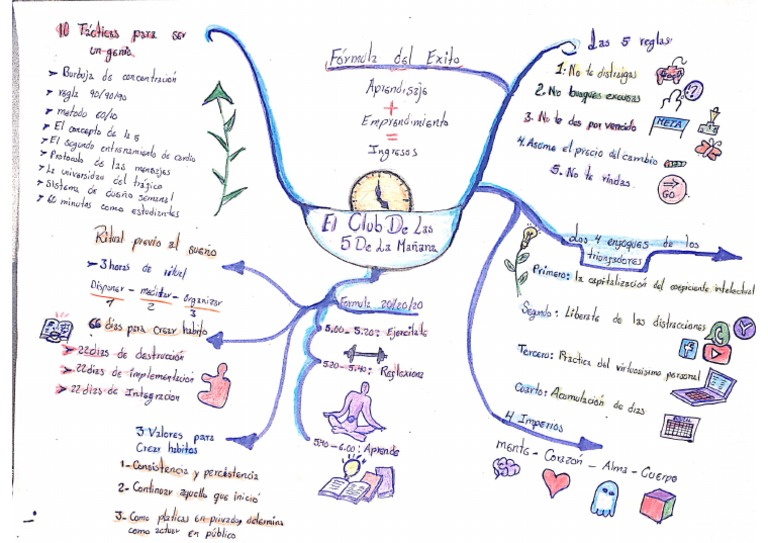 10 Tácticas para ser
un genio
Burbuja de concentración
regla 90/90/90
metodo 60/10
El concepto de las 5
El segundo entrenamiento de
Protocolo de los mensajes
La universidad del tráfico
Sistema de diseño semanal
60 minutos como estudiantes
Ritual previo al sueño
3 horas de ritual
Disponer - meditar - organizar
1 2 3
66 dias para crear habito
22 dias de destrucción
22 dias de implementación
22 dias de Integración
3 Valores para
Crear habitos
1- Consistencia y percistencia
2- Continuar aquello que inició
3- Como platicas en privado, determina
como actuar en público
Fórmula del Exito
Aprendisaje
+
Emprendimiento
=
Ingresos
El Club De Las
5 De La Mañana
Formula 20/20/20
5.00 - 5.20: Ejercitate
5.20 - 5.40: Reflexiona
5.40 - 6.00: Aprende
Las 5 reglas
1. No te distraigas
2. No busques excusas
?
3. No te des por vencido
META
4. Asome el precio del cambio
5. No te rindas
GO
Los 4 enfoques de los
triunfadores
Primero: la capitalización del coeficiente intelectual
Segundo: Liberate de las distracciones
Tercero: Practica del virtuosismo personal
Cuarto: Acumulación de dias
4 Imperios
mente - Corazón - Alma - Cuerpo